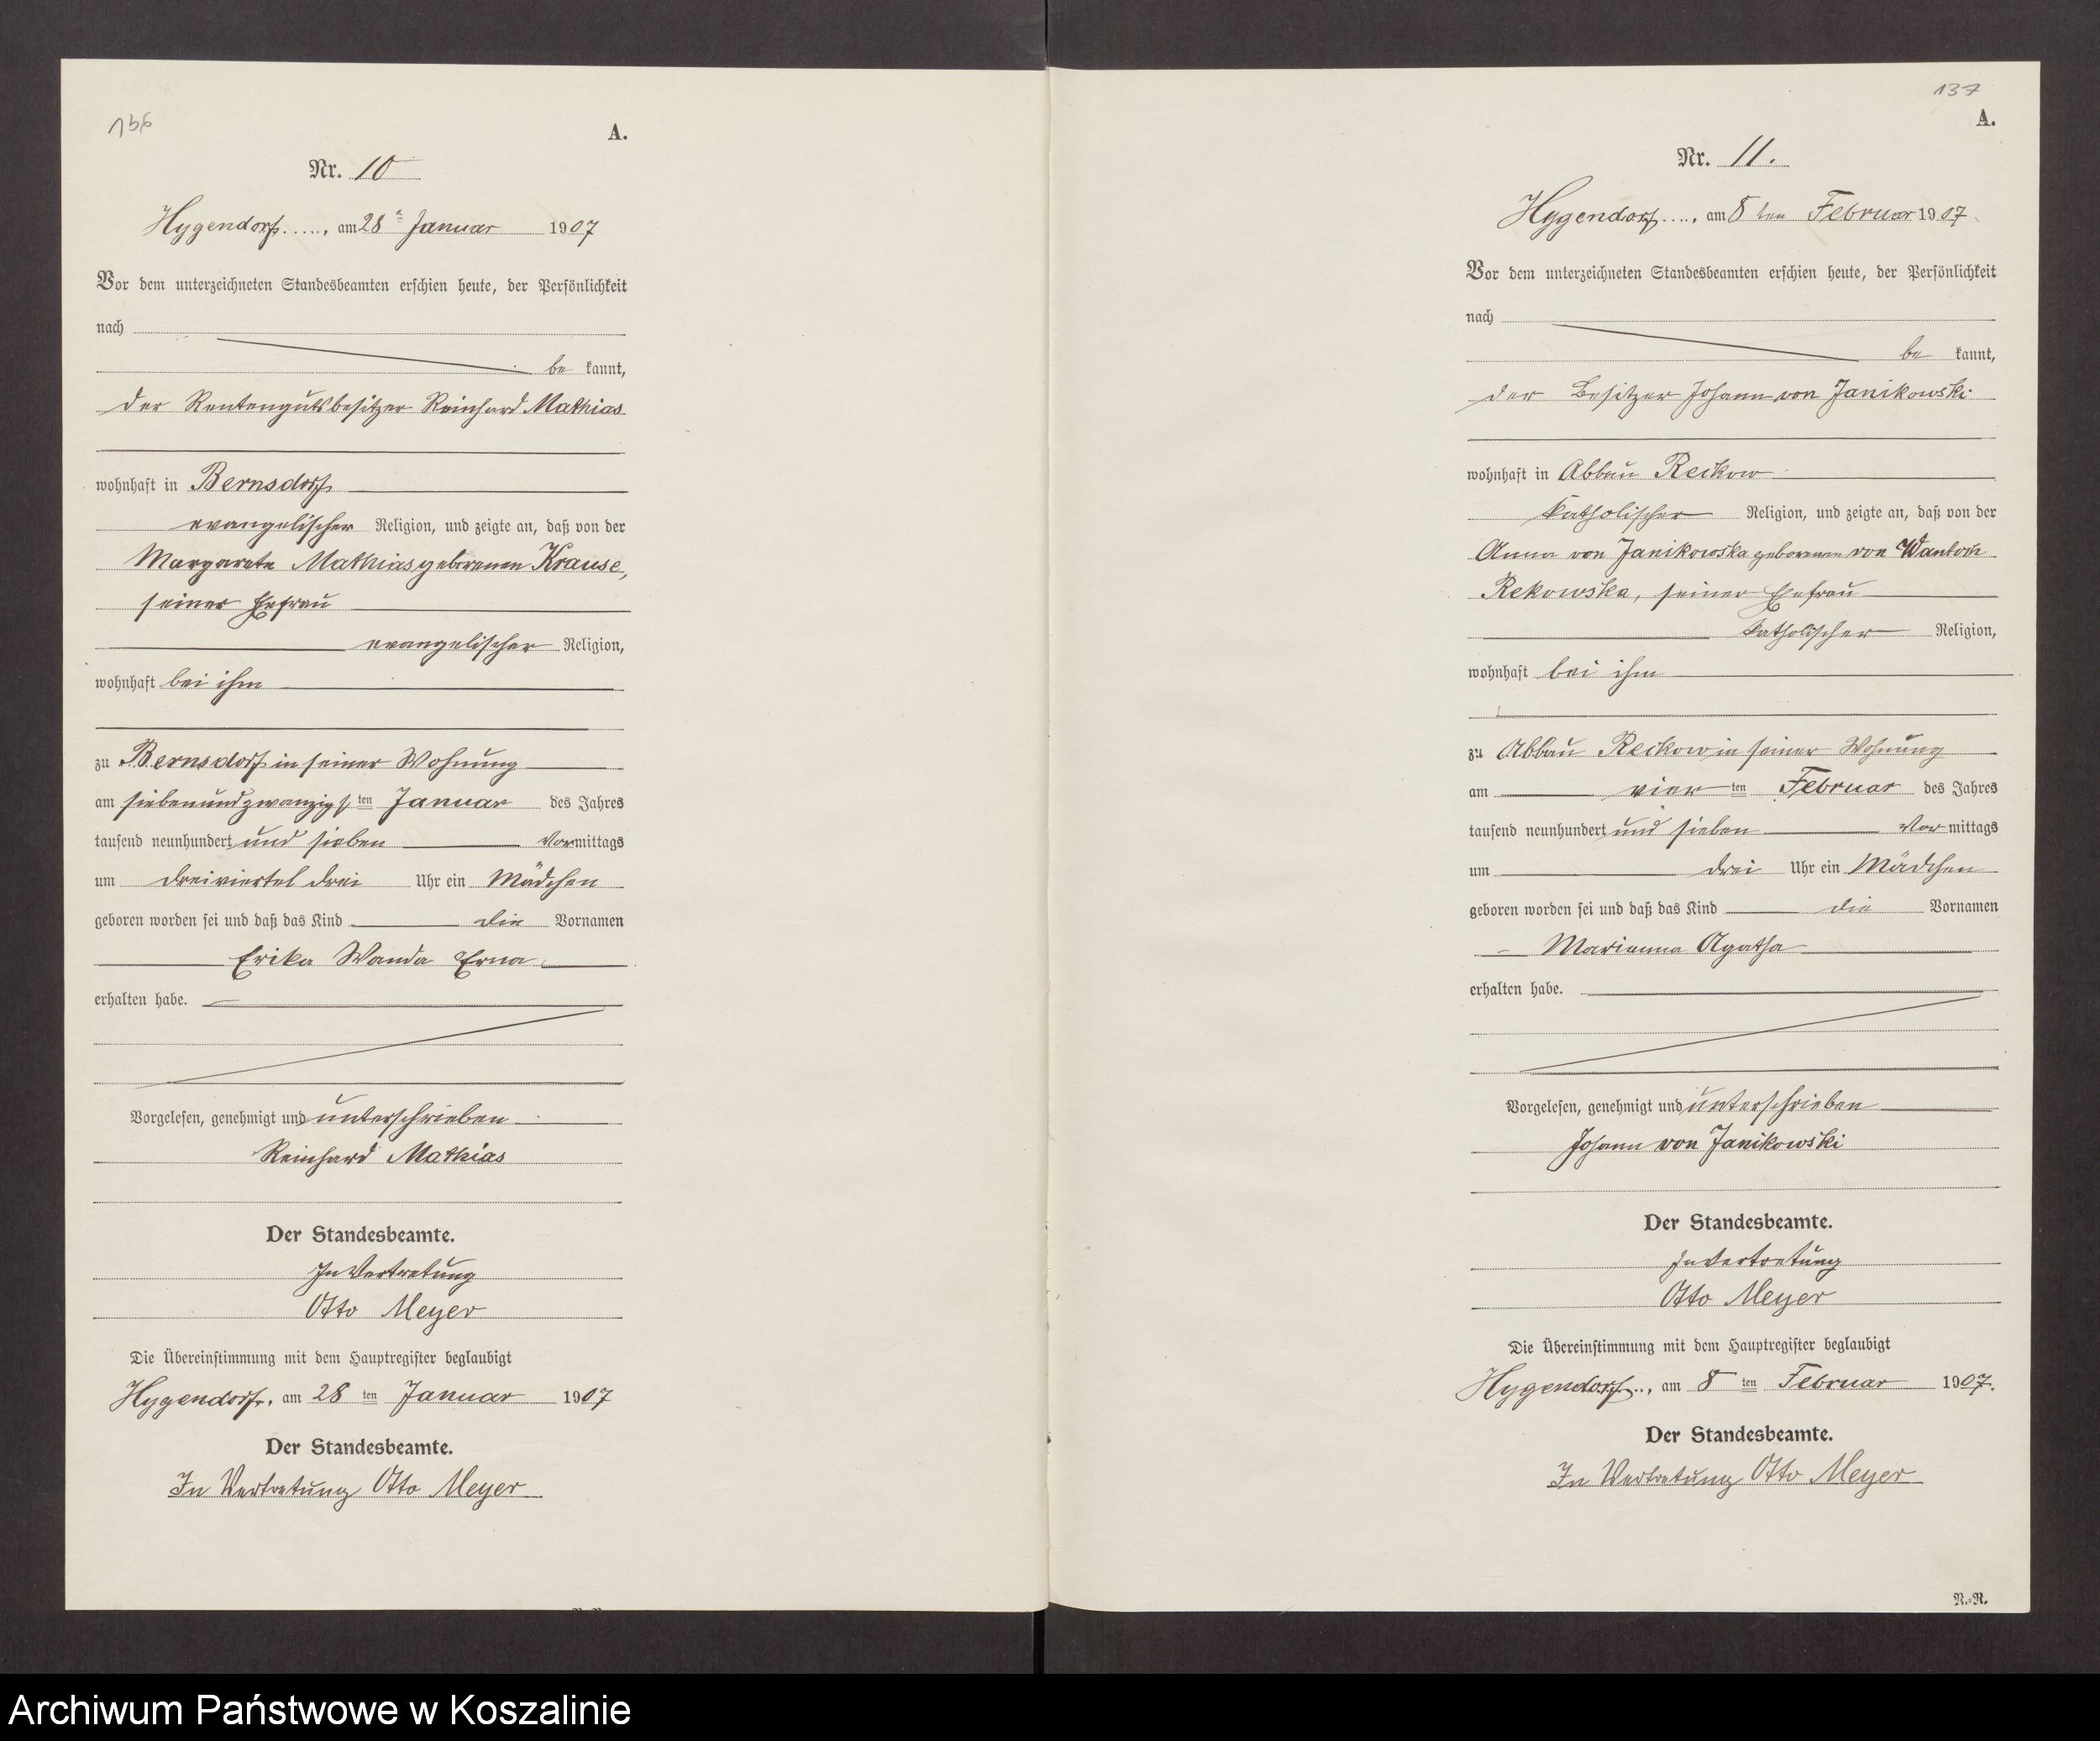 136
A.
Nr. 10
Hygendorf....., am 28ten Januar 1907
Vor dem unterzeichneten Standesbeamten erschien heute, der Persönlichkeit
nach
be kannt,
der Rentengutsbesitzer Reinhard Mathias
wohnhaft in Bernsdorf
evangelischer Religion, und zeigte an, daß von der
Margarete Mathias geborenen Krause,
seiner Ehefrau
evangelischer Religion,
wohnhaft bei ihm
zu Bernsdorf in seiner Wohnung
am siebenundzwanzigs ten Januar des Jahres
tausend neunhundert und sieben Vormittags
um dreiviertel drei Uhr ein Mädchen
geboren worden sei und daß das Kind die Vornamen
Erika Wanda Erna
erhalten habe.
Vorgelesen, genehmigt und unterschrieben
Reinhard Mathias
Der Standesbeamte.
In Vertretung
Otto Meyer
Die Übereinstimmung mit dem Hauptregister beglaubigt
Hygendorf, am 28 ten Januar 1907
Der Standesbeamte.
In Vertretung Otto Meyer
137
A.
Nr. 11.
Hygendorf...., am 8 ten Februar 1907
Vor dem unterzeichneten Standesbeamten erschien heute, der Persönlichkeit
nach
be kannt,
der Besitzer Johann von Janikowski
wohnhaft in Abbau Reckow
katholischer Religion, und zeigte an, daß von der
Anna von Janikowska geborenen von Wantoch
Rekowska, seiner Ehefrau
katholischer Religion,
wohnhaft bei ihm
zu Abbau Reckow in seiner Wohnung
am vier ten Februar des Jahres
tausend neunhundert und sieben Vor mittags
um drei Uhr ein Mädchen
geboren worden sei und daß das Kind die Vornamen
Marianna Agatha
erhalten habe.
Vorgelesen, genehmigt und unterschrieben
Johann von Janikowski
Der Standesbeamte.
In Vertretung
Otto Meyer
Die Übereinstimmung mit dem Hauptregister beglaubigt
Hygendorf.., am 8 ten Februar 1907.
Der Standesbeamte.
In Vertretung Otto Meyer
N.-R.
Archiwum Państwowe w Koszalinie